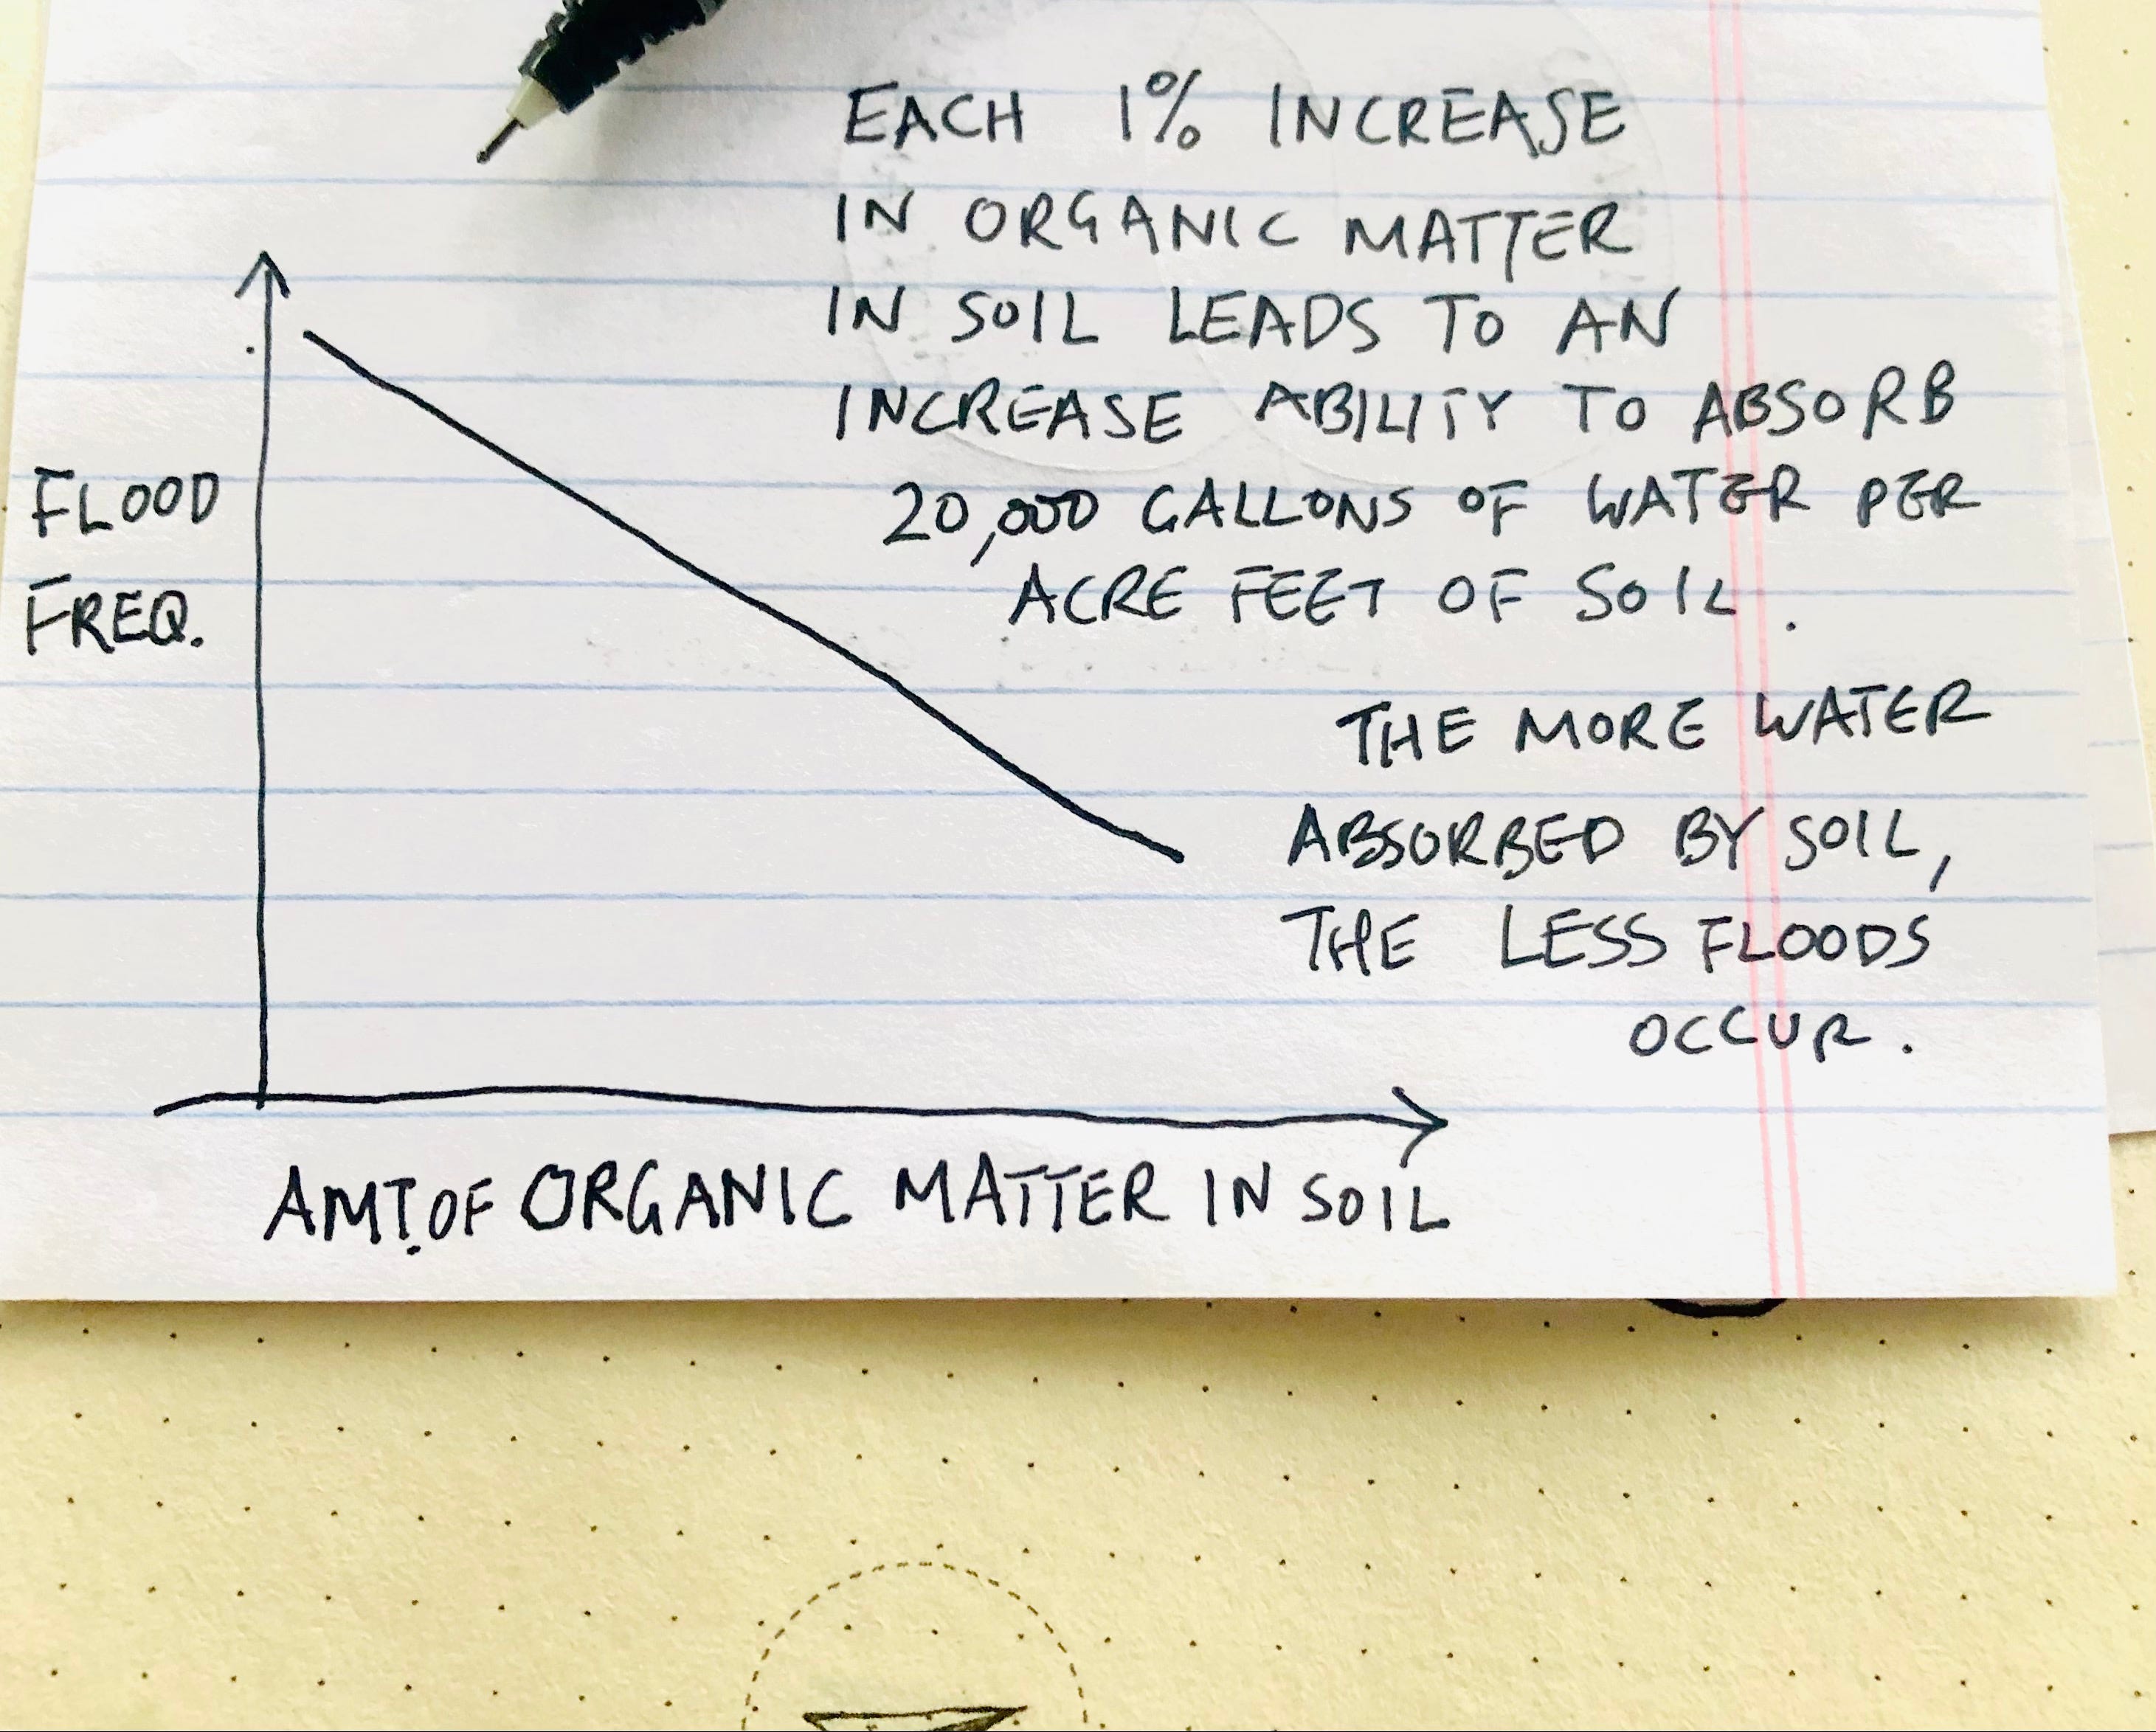 EACH 1% INCREASE
IN ORGANIC MATTER
IN SOIL LEADS TO AN
INCREASE ABILITY TO ABSORB
20,000 GALLONS OF WATER PER
ACRE FEET OF SOIL.
THE MORE WATER
ABSORBED BY SOIL,
THE LESS FLOODS
OCCUR.
FLOOD
FREQ.
AMT. OF ORGANIC MATTER IN SOIL